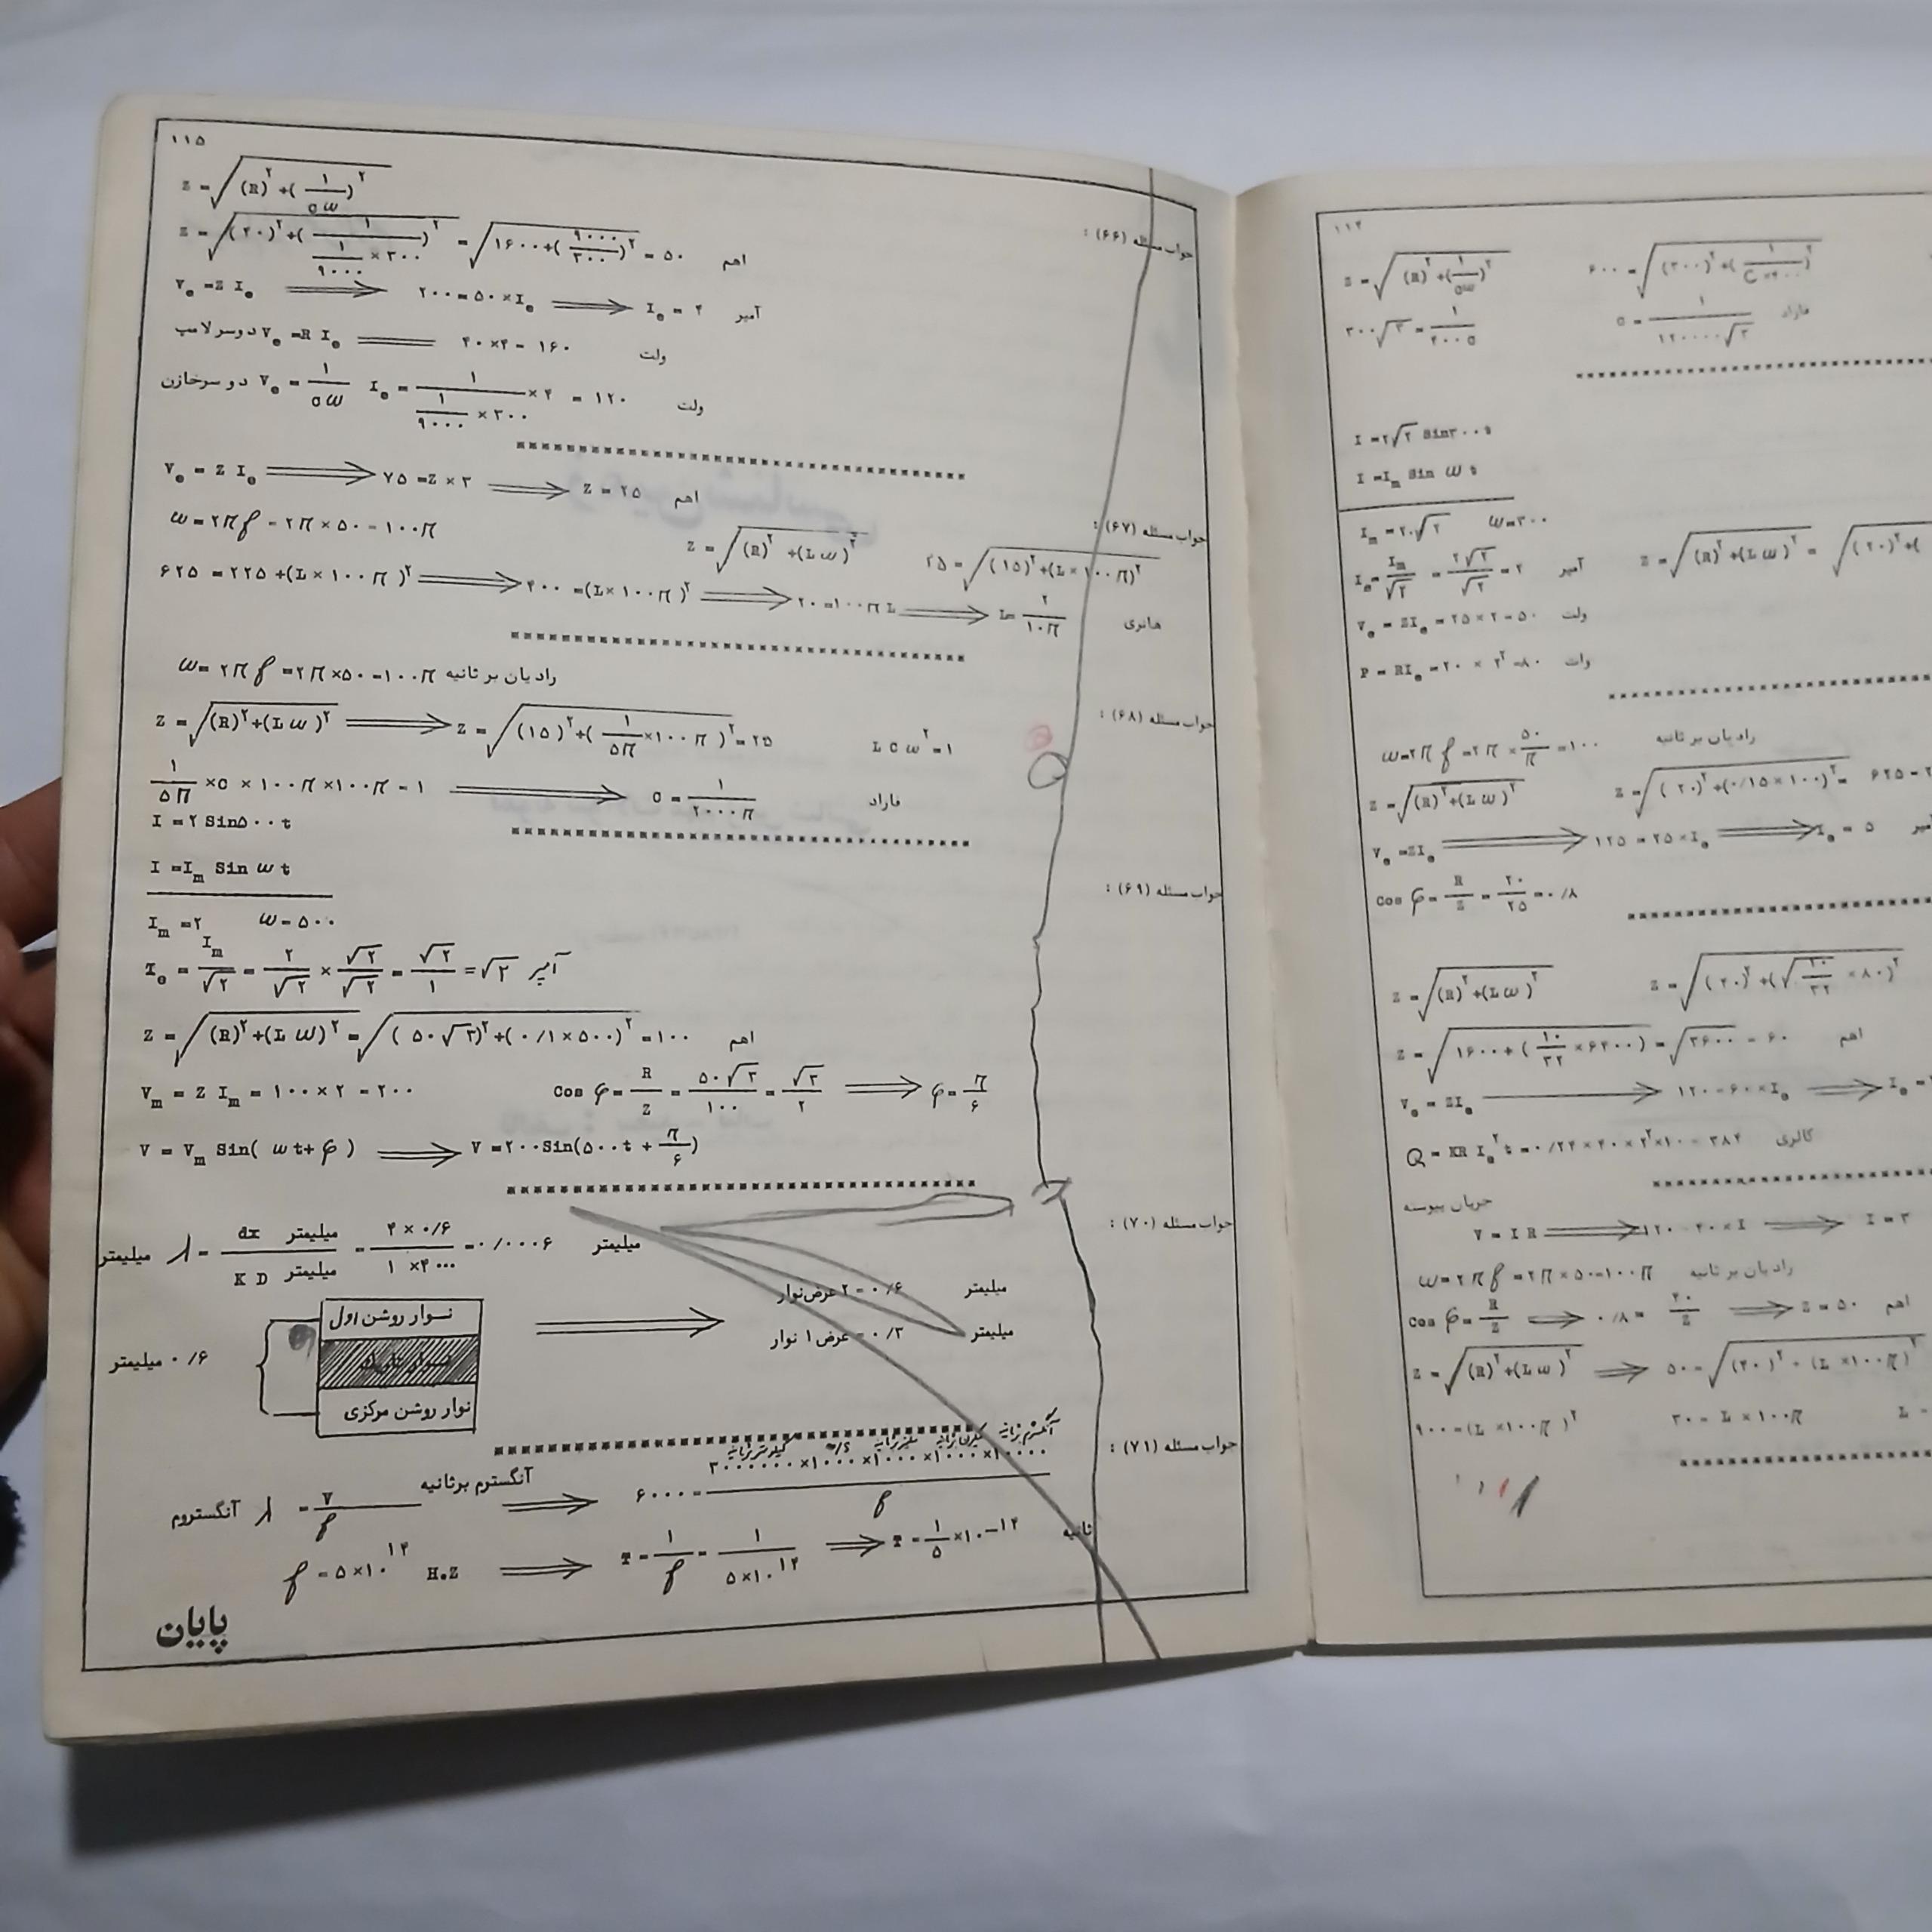 ۱۱۵
جواب مسئله (۶۶) :
Z = √((R)^۲ + (۱/cω)^۲)
Z = √((۴۰)^۲ + (۱/(۱/۹۰۰۰ × ۳۰۰))^۲) = √(۱۶۰۰ + (۹۰۰۰/۳۰۰)^۲) = ۵۰ اهم
V_e = Z I_e ⟹ ۲۰۰ = ۵۰ × I_e ⟹ I_e = ۴ آمپر
دوسر لامپ V_e = R I_e ═══ ۴۰ × ۴ = ۱۶۰ ولت
دو سرخازن V_e = ۱/cω I_e = ۱/(۱/۹۰۰۰ × ۳۰۰) × ۴ = ۱۲۰ ولت
جواب مسئله (۶۷) :
V_e = Z I_e ⟹ ۷۵ = Z × ۳ ⟹ Z = ۲۵ اهم
ω = ۲π f = ۲π × ۵۰ = ۱۰۰π Z = √((R)^۲ + (L ω)^۲) ۲۵ = √((۱۵)^۲ + (L × ۱۰۰π)^۲)
۶۲۵ = ۲۲۵ + (L × ۱۰۰π)^۲ ⟹ ۴۰۰ = (L × ۱۰۰π)^۲ ⟹ ۲۰ = ۱۰۰π L ⟹ L = ۲/۱۰π هانری
جواب مسئله (۶۸) :
ω = ۲π f = ۲π × ۵۰ = ۱۰۰π رادیان بر ثانیه
Z = √((R)^۲ + (L ω)^۲) ⟹ Z = √((۱۵)^۲ + (۱/۵π × ۱۰۰π)^۲) = ۲۵ L C ω^۲ = ۱
۱/۵π × C × ۱۰۰π × ۱۰۰π = ۱ ⟹ C = ۱/۲۰۰۰π فاراد
جواب مسئله (۶۹) :
I = ۲ Sin۵۰۰t
I = I_m Sin ω t
I_m = ۲ ω = ۵۰۰
I_e = I_m/√۲ = ۲/√۲ × √۲/√۲ = √۲/۱ = √۲ آمپر
Z = √((R)^۲ + (L ω)^۲) = √((۵۰√۳)^۲ + (۰/۱ × ۵۰۰)^۲) = ۱۰۰ اهم
V_m = Z I_m = ۱۰۰ × ۲ = ۲۰۰ Cos φ = R/Z = ۵۰√۳/۱۰۰ = √۳/۲ ⟹ φ = π/۶
V = V_m Sin( ωt + φ ) ⟹ V = ۲۰۰Sin(۵۰۰t + π/۶)
جواب مسئله (۷۰) :
میلیمتر λ = dx میلیمتر / K D میلیمتر = ۴ × ۰/۶ / ۱ × ۴۰۰۰ = ۰/۰۰۰۶ میلیمتر
۰/۶ = ۲ عرض نوار میلیمتر
۰/۳ = عرض ۱ نوار میلیمتر
نوار روشن اول
۰/۶ میلیمتر
نوار تاریک
نوار روشن مرکزی
جواب مسئله (۷۱) :
آنگستروم λ = V/f آنگسترم برثانیه ⟹ ۶۰۰۰ = ۳۰۰۰۰۰ × ۱۰۰۰ × ۱۰۰۰ × ۱۰۰۰ × ۱۰۰۰۰ / f
f = ۵×۱۰^۱۴ H.Z ⟹ T = ۱/f = ۱/۵×۱۰^۱۴ ⟹ T = ۱/۵ × ۱۰^-۱۴ ثانیه
پایان
۱۱۴
Z = √((R)^۲ + (۱/cω)^۲) ۶۰۰ = √((۳۰۰)^۲ + (۱/C×۴۰۰)^۲)
۳۰۰√۳ = ۱/۴۰۰C C = ۱/۱۲۰۰۰۰√۳ فاراد
I = ۲√۲ Sin۳۰۰t
I = I_m Sin ω t
I_m = ۲۰√۲ ω = ۳۰۰
I_e = I_m/√۲ = ۲√۲/√۲ = ۲ آمپر Z = √((R)^۲ + (L ω)^۲) = √((۲۰)^۲ + (
V_e = ZI_e = ۲۵ × ۲ = ۵۰ ولت
P = RI_e = ۲۰ × ۲^۲ = ۸۰ وات
ω = ۲π f = ۲π × ۵۰/π = ۱۰۰ رادیان بر ثانیه
Z = √((R)^۲ + (L ω)^۲) Z = √((۲۰)^۲ + (۰/۱۵ × ۱۰۰)^۲) = ۶۲۵ =
V_e = ZI_e ⟹ ۱۲۵ = ۲۵ × I_e ⟹ I_e = ۵
Cos φ = R/Z = ۲۰/۲۵ = ۰/۸
Z = √((R)^۲ + (L ω)^۲) Z = √((۴۰)^۲ + (√(۱۰/۳۲) × ۸۰)^۲)
Z = √(۱۶۰۰ + (۱۰/۳۲ × ۶۴۰۰)) = √۳۶۰۰ = ۶۰ اهم
V_e = ZI_e ⟶ ۱۲۰ = ۶۰ × I_e ⟹ I_e =
Q = KR I_e^۲ t = ۰/۲۴ × ۴۰ × ۲^۲ × ۱۰ = ۳۸۴ کالری
جریان پیوسته
V = I R ⟹ ۱۲۰ = ۴۰ × I ⟹ I = ۳
ω = ۲π f = ۲π × ۵۰ = ۱۰۰π رادیان بر ثانیه
Cos φ = R/Z ⟹ ۰/۸ = ۴۰/Z ⟹ Z = ۵۰ اهم
Z = √((R)^۲ + (L ω)^۲) ⟹ ۵۰ = √((۴۰)^۲ + (L × ۱۰۰π)^۲)
۹۰۰ = (L × ۱۰۰π)^۲ ۳۰ = L × ۱۰۰π L =